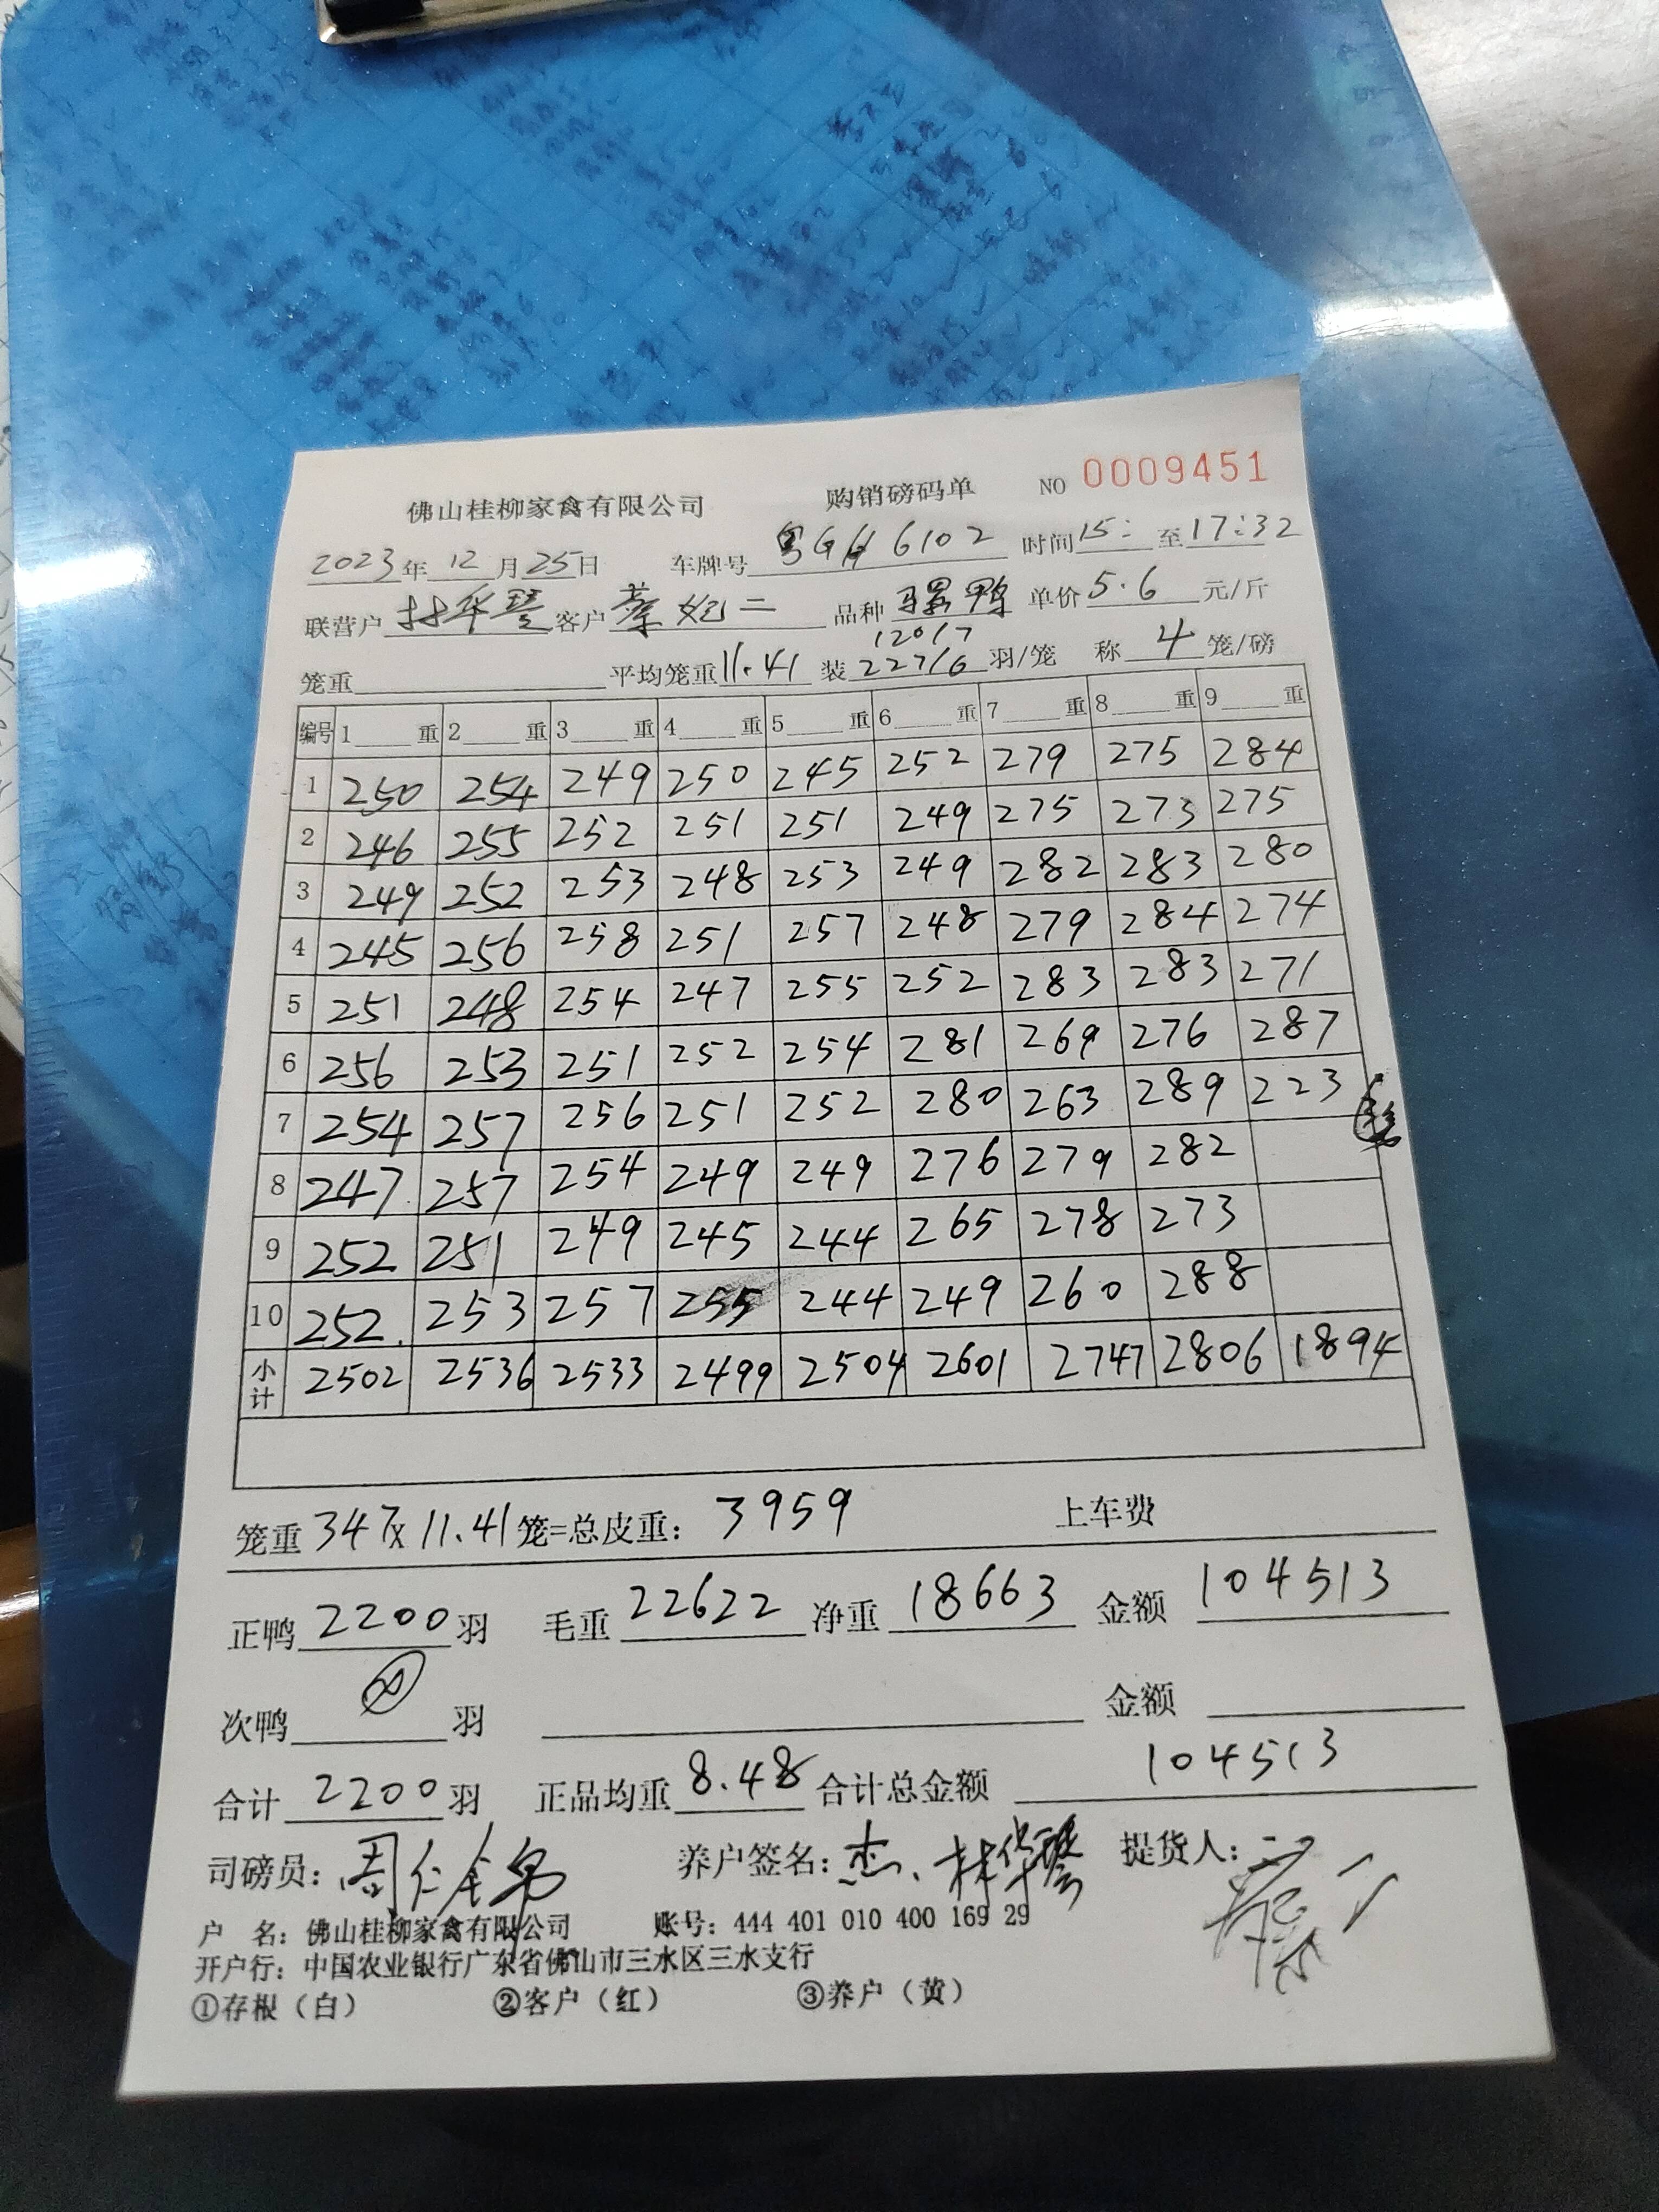 佛山桂柳家禽有限公司 购销磅码单 NO 0009451
2023年12月25日 车牌号 粤G 6102 时间15: 至17:32
联营户 林华 客户 蔡 二 品种 骡鸭 单价5.6 元/斤
120/7
笼重 平均笼重11.41 装227/6羽/笼 称4笼/磅
编号 1 重 2 重 3 重 4 重 5 重 6 重 7 重 8 重 9 重
1 250 254 249 250 245 252 279 275 284
2 246 255 252 251 251 249 275 273 275
3 249 252 253 248 253 249 282 283 280
4 245 256 258 251 257 248 279 284 274
5 251 248 254 247 255 252 283 283 271
6 256 253 251 252 254 281 269 276 287
7 254 257 256 251 252 280 263 289 223
8 247 257 254 249 249 276 279 282
9 252 251 249 245 244 265 278 273
10 252 253 257 255 244 249 260 288
小计 2502 2536 2533 2499 2504 2601 2747 2806 1894
笼重347x11.41笼=总皮重: 3959 上车费
正鸭2200羽 毛重22622 净重18663 金额104513
次鸭 羽 金额
合计2200羽 正品均重8.48合计总金额 104513
司磅员: 周仁 养户签名: 杰、林华 提货人:
户 名: 佛山桂柳家禽有限公司 账号: 444 401 010 400 169 29
开户行: 中国农业银行广东省佛山市三水区三水支行
①存根（白） ②客户（红） ③养户（黄）